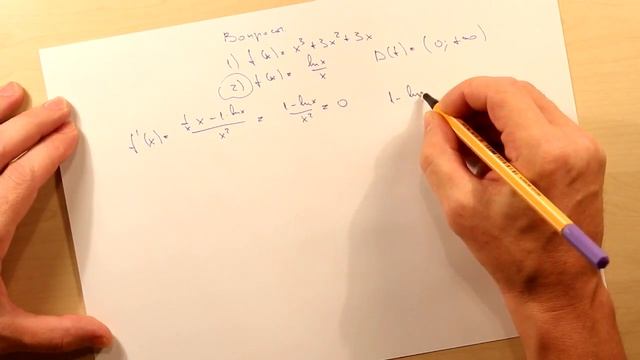 Вопросы
1) f(x) = x³ + 3x² + 3x
2) f(x) = lnx/x D(f) = (0; +∞)
f'(x) = (1/x · x − 1 · lnx)/x² = (1 − lnx)/x² = 0 1 − lnx